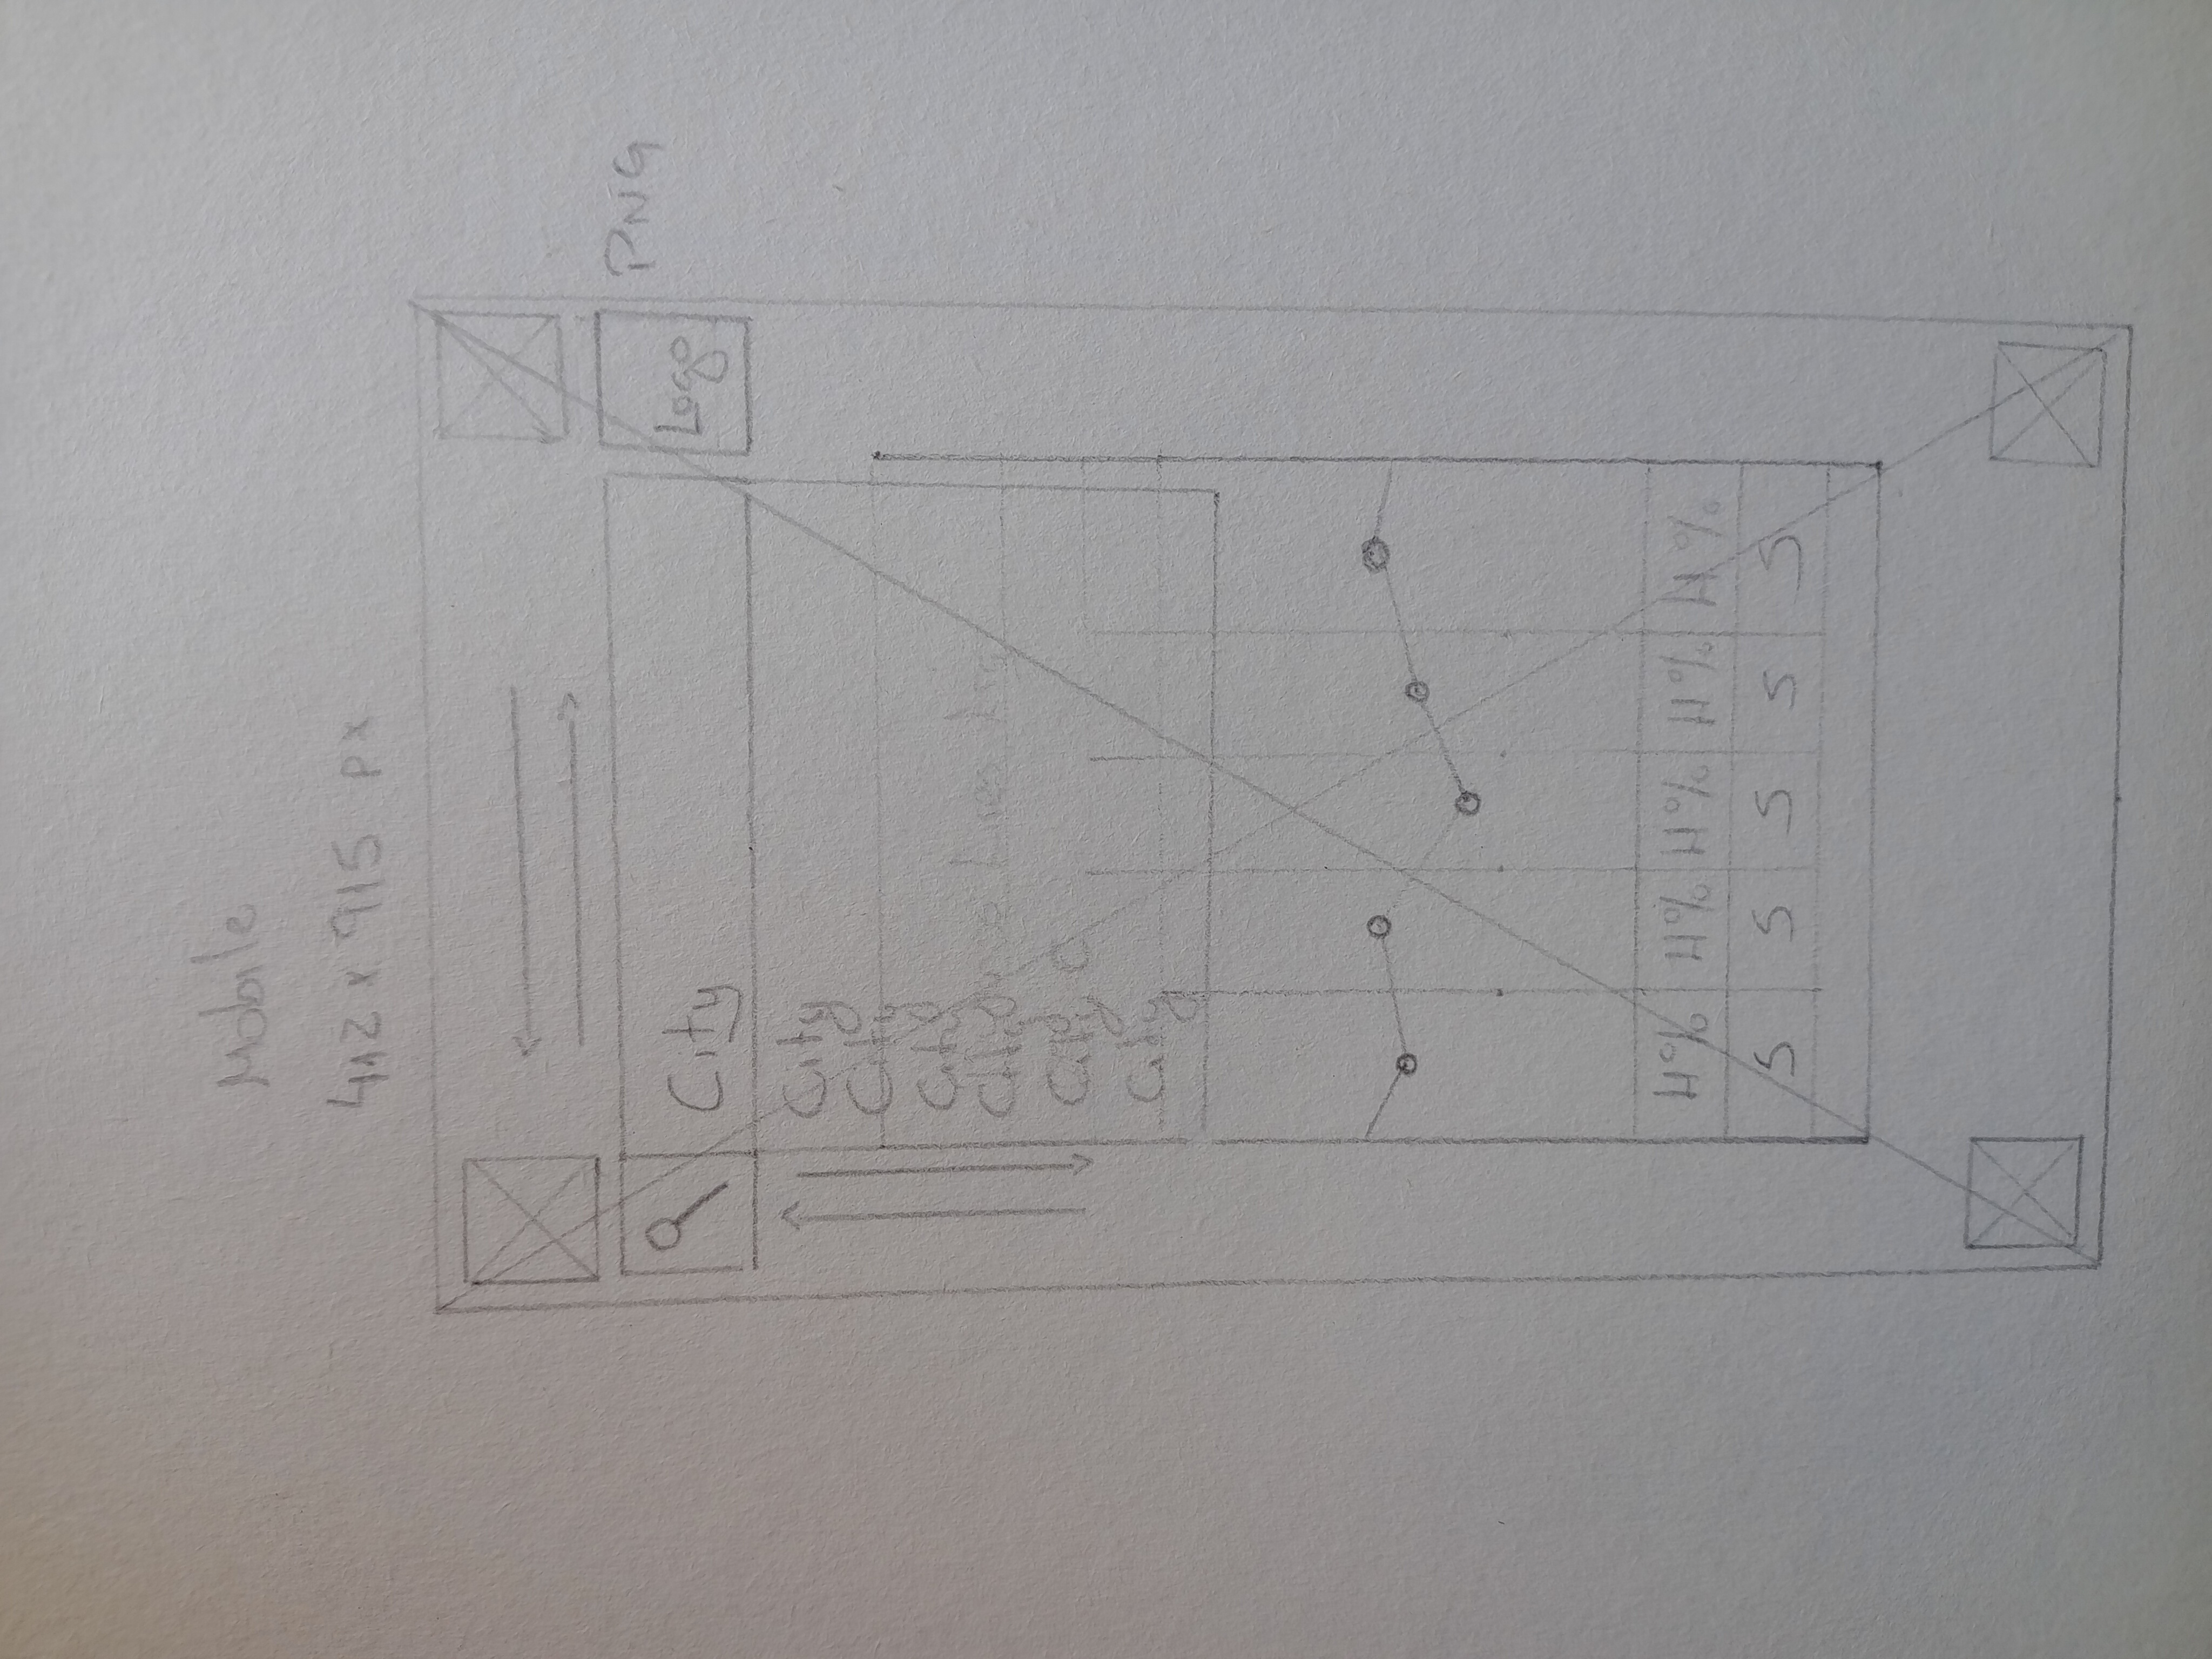 Mobile
412 x 915 px
PNG
City
Logo
City
City
City
City
City C
City
4% 4% 4% 4% 4%
S S S S S